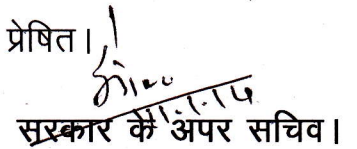 प्रेषित।
सरकार के अपर सचिव।